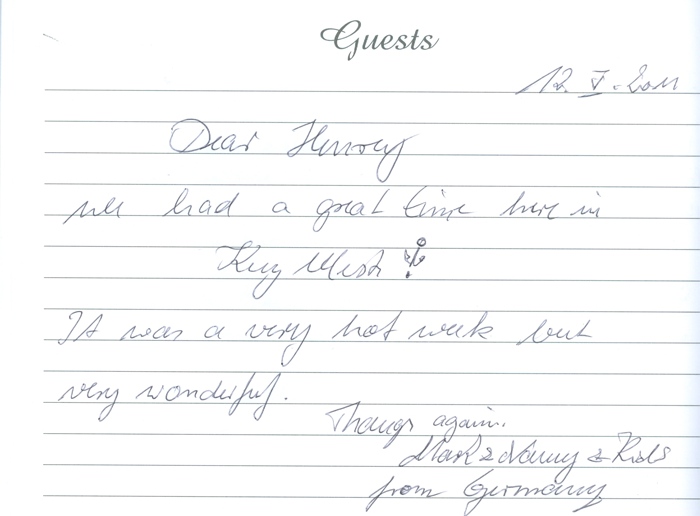 Guests
12. V. 2011
Dear
we had a great time here in
Key West!
It was a very hot week but
very wonderful.
Thangs again.
Mark & Nanny & Kids
from Germany